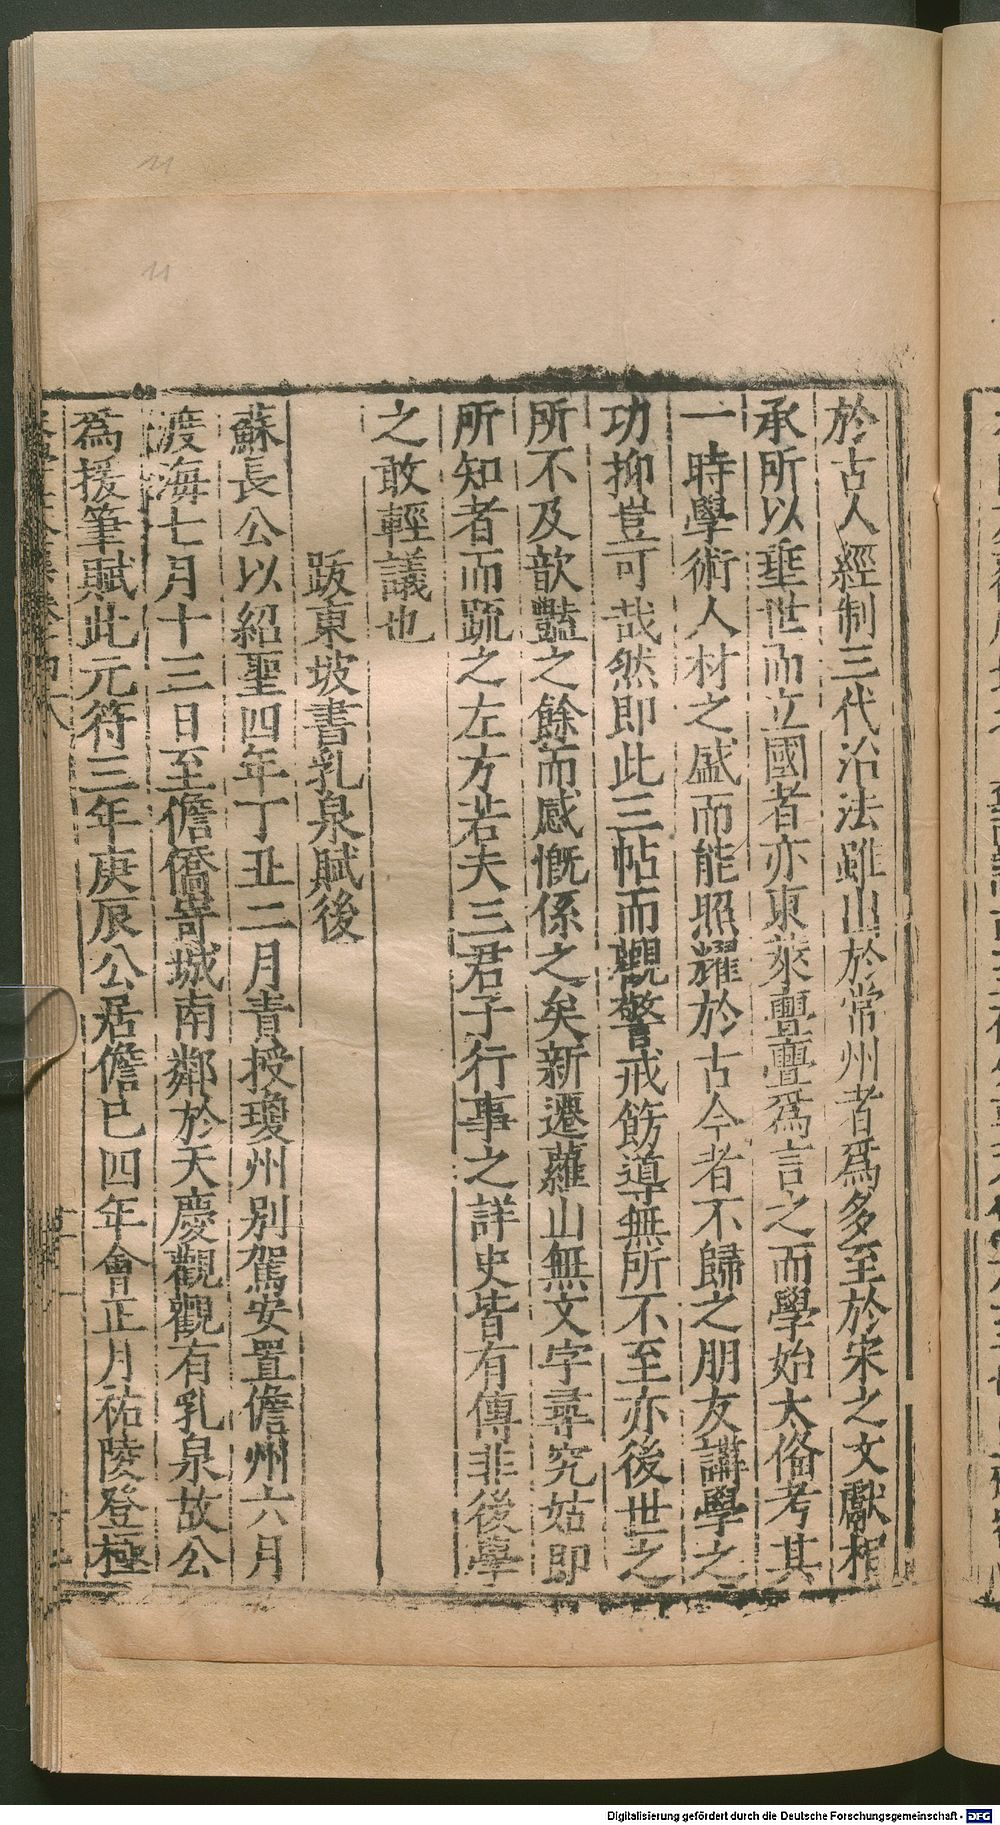 於古人經制三代治法雖出於常州者爲多至於宋之文獻相
承所以垂世而立國者亦東萊亹亹爲言之而學始太備考其
一時學術人材之盛而能照耀於古今者不歸之朋友講學之
功抑豈可哉然即此三帖而觀警戒飭導無所不至亦後世之
所不及歆豔之餘而感慨係之矣新遷蘿山無文字尋究姑即
所知者而疏之左方若夫三君子行事之詳史皆有傳非後學
之敢輕議也
跋東坡書乳泉賦後
蘇長公以紹聖四年丁丑二月責授瓊州別駕安置儋州六月
渡海七月十三日至儋僑寄城南鄰於天慶觀觀有乳泉故公
爲援筆賦此元符三年庚辰公居儋已四年會正月祐陵登極
11
11
Digitalisierung gefördert durch die Deutsche Forschungsgemeinschaft - DFG